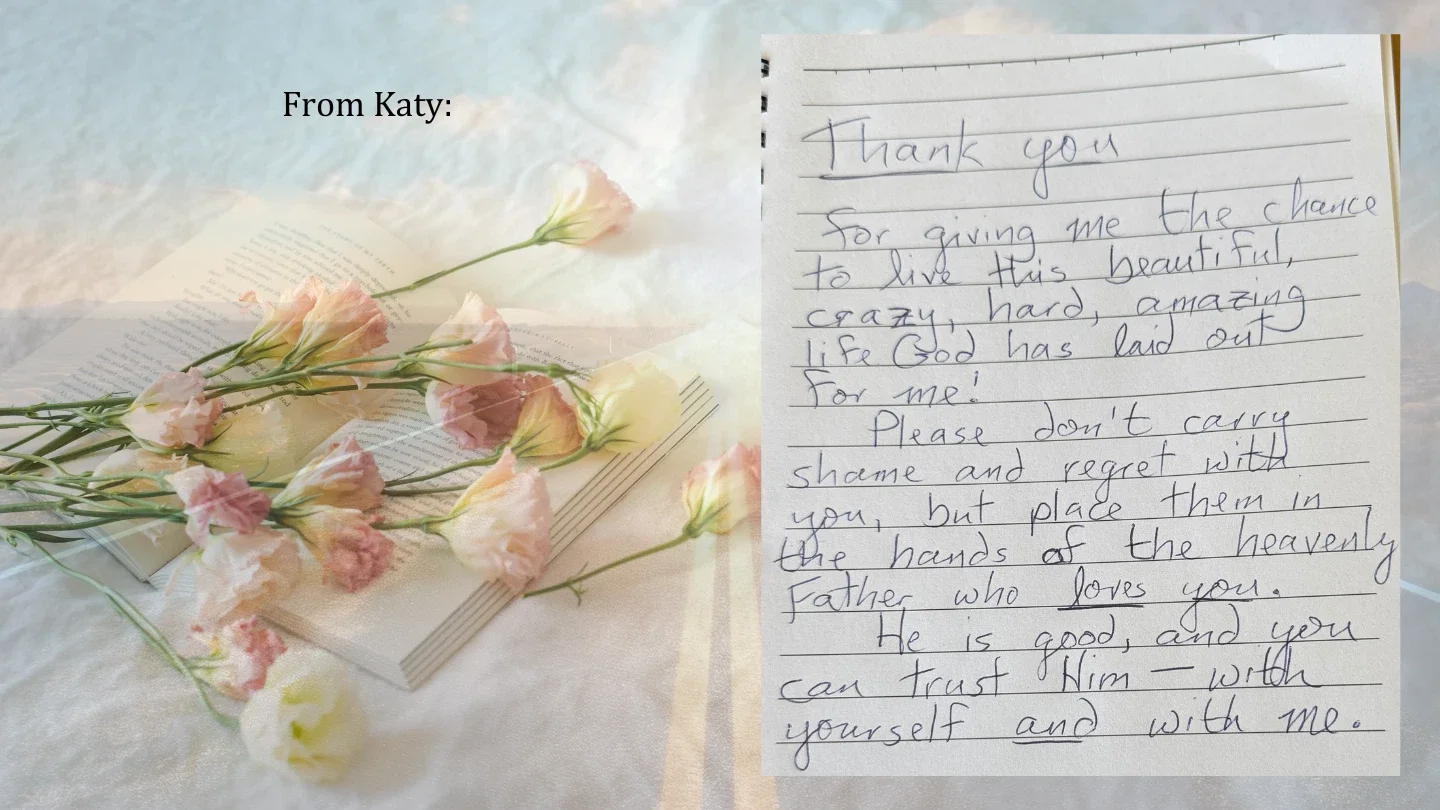 From Katy:
Thank you
for giving me the chance
to live this beautiful,
crazy, hard, amazing
life God has laid out
for me!
Please don't carry
shame and regret with
you, but place them in
the hands of the heavenly
Father who loves you.
He is good, and you
can trust Him — with
yourself and with me.